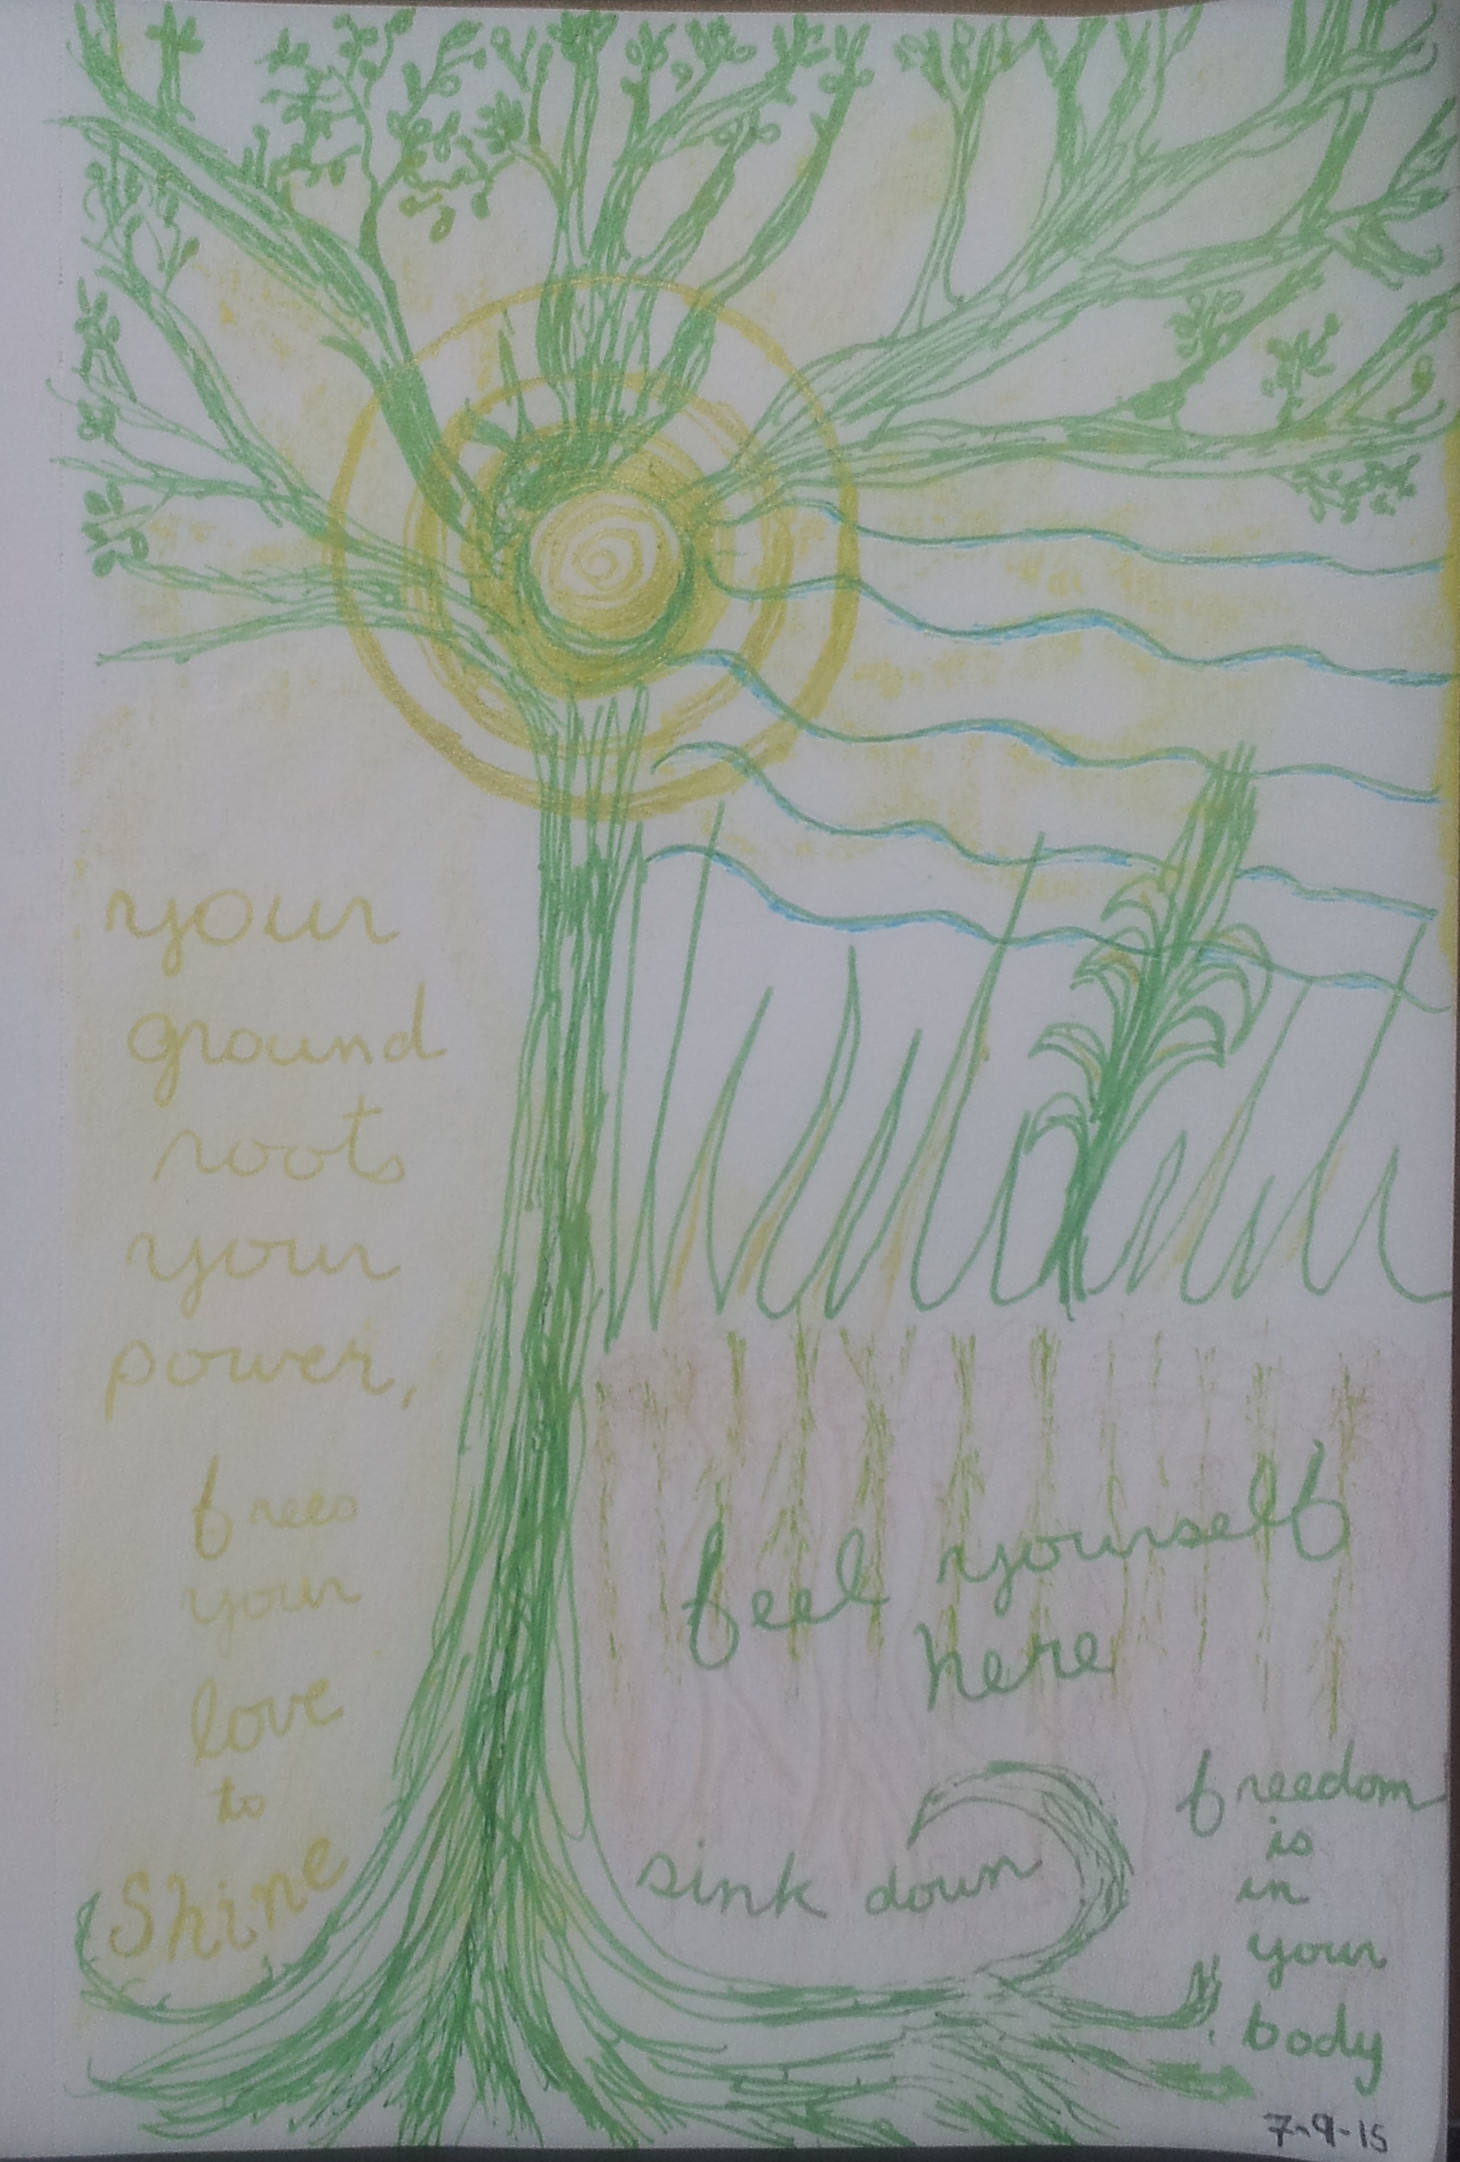 your
ground
roots
your
power,
frees
your
love
to
Shine
feel yourself
here
sink down
freedom
is
in
your
body
7-9-15